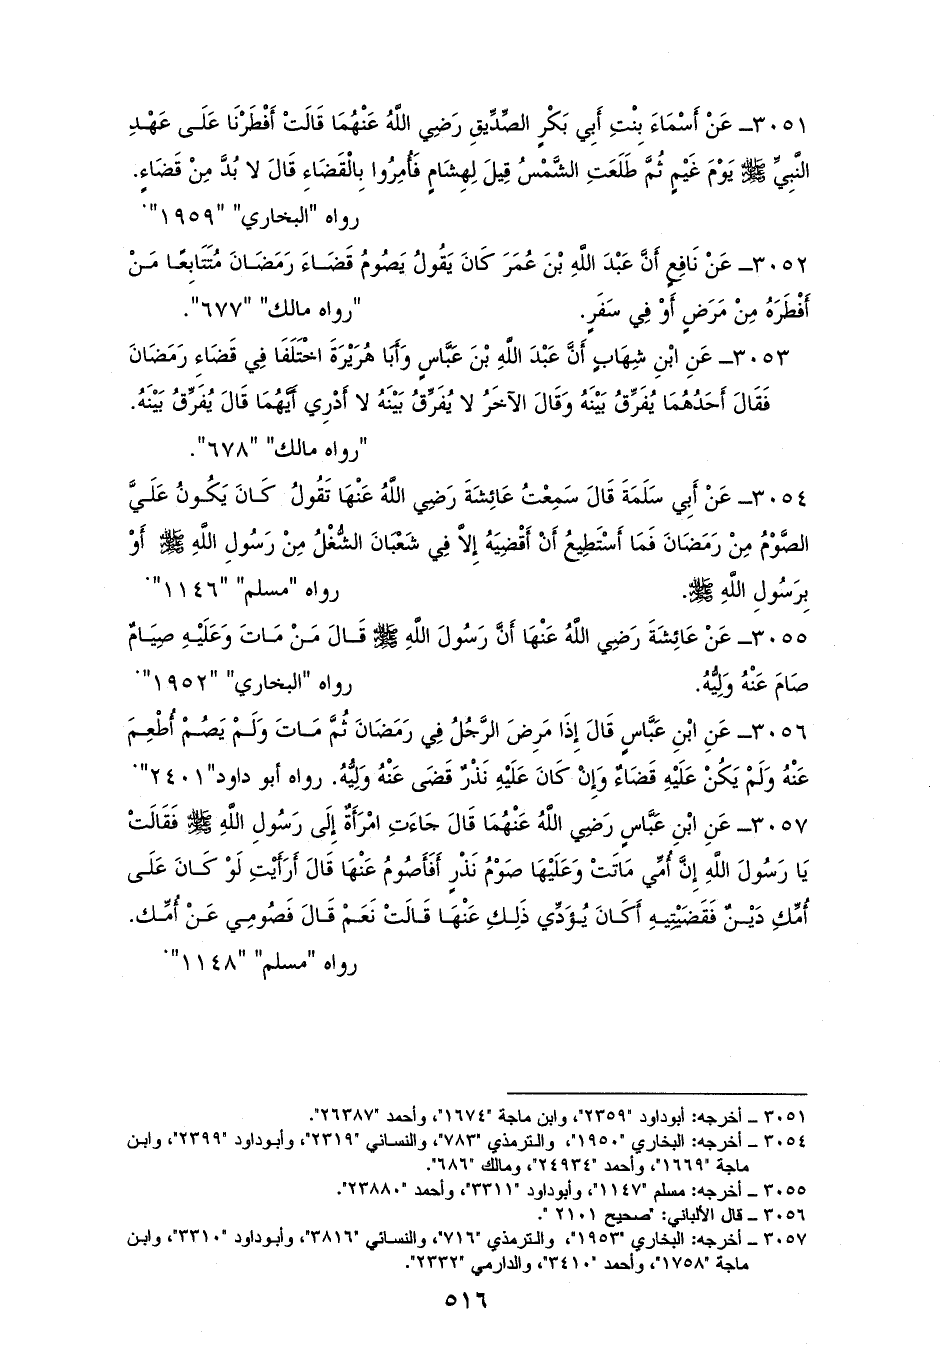 ٣٠٥١ـ عَنْ أَسْمَاءَ بِنْتِ أَبِي بَكْرٍ الصِّدِّيقِ رَضِي اللَّهُ عَنْهُمَا قَالَتْ أَفْطَرْنَا عَلَـى عَهْـدِ
النَّبِيِّ ﷺ يَوْمَ غَيْمٍ ثُمَّ طَلَعَتِ الشَّمْسُ قِيلَ لِهِشَامٍ فَأُمِرُوا بِالْقَضَاءِ قَالَ لا بُدَّ مِنْ قَضَاءٍ.
رواه "البخاري" "١٩٥٩".
٣٠٥٢ـ عَنْ نَافِعٍ أَنَّ عَبْدَ اللَّهِ بْنَ عُمَرَ كَانَ يَقُولُ يَصُومُ قَضَـاءَ رَمَضَـانَ مُتَتَابِعًـا مَـنْ
أَفْطَرَهُ مِنْ مَرَضٍ أَوْ فِي سَفَرٍ. "رواه مالك" "٦٧٧".
٣٠٥٣ـ عَنِ ابْنِ شِهَابٍ أَنَّ عَبْدَ اللَّهِ بْنَ عَبَّاسٍ وَأَبَا هُرَيْرَةَ اخْتَلَفَا فِي قَضَاءِ رَمَضَانَ
فَقَالَ أَحَدُهُمَا يُفَرِّقُ بَيْنَهُ وَقَالَ الآخَرُ لا يُفَرِّقُ بَيْنَهُ لا أَدْرِي أَيَّهُمَا قَالَ يُفَرِّقُ بَيْنَهُ.
"رواه مالك" "٦٧٨".
٣٠٥٤ـ عَنْ أَبِي سَلَمَةَ قَالَ سَمِعْتُ عَائِشَةَ رَضِي اللَّهُ عَنْهَا تَقُولُ كَـانَ يَكُـونُ عَلَـيَّ
الصَّوْمُ مِنْ رَمَضَانَ فَمَا أَسْتَطِيعُ أَنْ أَقْضِيَهُ إِلاَّ فِي شَعْبَانَ الشُّغْلُ مِنْ رَسُولِ اللَّهِ ﷺ أَوْ
بِرَسُولِ اللَّهِ ﷺ. رواه "مسلم" "١١٤٦".
٣٠٥٥ـ عَنْ عَائِشَةَ رَضِي اللَّهُ عَنْهَا أَنَّ رَسُولَ اللَّهِ ﷺ قَـالَ مَـنْ مَـاتَ وَعَلَيْـهِ صِيَـامٌ
صَامَ عَنْهُ وَلِيُّهُ. رواه "البخاري" "١٩٥٢".
٣٠٥٦ـ عَنِ ابْنِ عَبَّاسٍ قَالَ إِذَا مَرِضَ الرَّجُلُ فِي رَمَضَانَ ثُمَّ مَـاتَ وَلَـمْ يَصُـمْ أُطْعِـمَ
عَنْهُ وَلَمْ يَكُنْ عَلَيْهِ قَضَاءٌ وَإِنْ كَانَ عَلَيْهِ نَذْرٌ قَضَى عَنْهُ وَلِيُّهُ. رواه أبو داود"٢٤٠١".
٣٠٥٧ـ عَنِ ابْنِ عَبَّاسٍ رَضِي اللَّهُ عَنْهُمَا قَالَ جَاءَتِ امْرَأَةٌ إِلَى رَسُولِ اللَّهِ ﷺ فَقَالَتْ
يَا رَسُولَ اللَّهِ إِنَّ أُمِّي مَاتَتْ وَعَلَيْهَا صَوْمُ نَذْرٍ أَفَأَصُومُ عَنْهَا قَالَ أَرَأَيْتِ لَوْ كَـانَ عَلَـى
أُمِّكِ دَيْـنٌ فَقَضَيْتِيـهِ أَكَـانَ يُـؤَدِّي ذَلِـكِ عَنْهَـا قَـالَتْ نَعَـمْ قَـالَ فَصُومِـي عَـنْ أُمِّـكِ.
رواه "مسلم" "١١٤٨".
٣٠٥١ ـ أخرجه: أبوداود "٢٣٥٩"، وابن ماجة "١٦٧٤"، وأحمد "٢٦٣٨٧".
٣٠٥٤ ـ أخرجه: البخاري "١٩٥٠"، والترمذي "٧٨٣"، والنسائي "٢٣١٩"، وأبوداود "٢٣٩٩"، وابـن
ماجة "١٦٦٩"، وأحمد "٢٤٩٣٤"، ومالك "٦٨٦".
٣٠٥٥ ـ أخرجه: مسلم "١١٤٧"، وأبوداود "٣٣١١"، وأحمد "٢٣٨٨٠".
٣٠٥٦ ـ قال الألباني: "صحيح ٢١٠١ ".
٣٠٥٧ ـ أخرجه: البخاري "١٩٥٣"، والترمذي "٧١٦"، والنسائي "٣٨١٦"، وأبوداود "٣٣١٠"، وابـن
ماجة "١٧٥٨"، وأحمد "٣٤١٠"، والدارمي "٢٣٣٢".
٥١٦